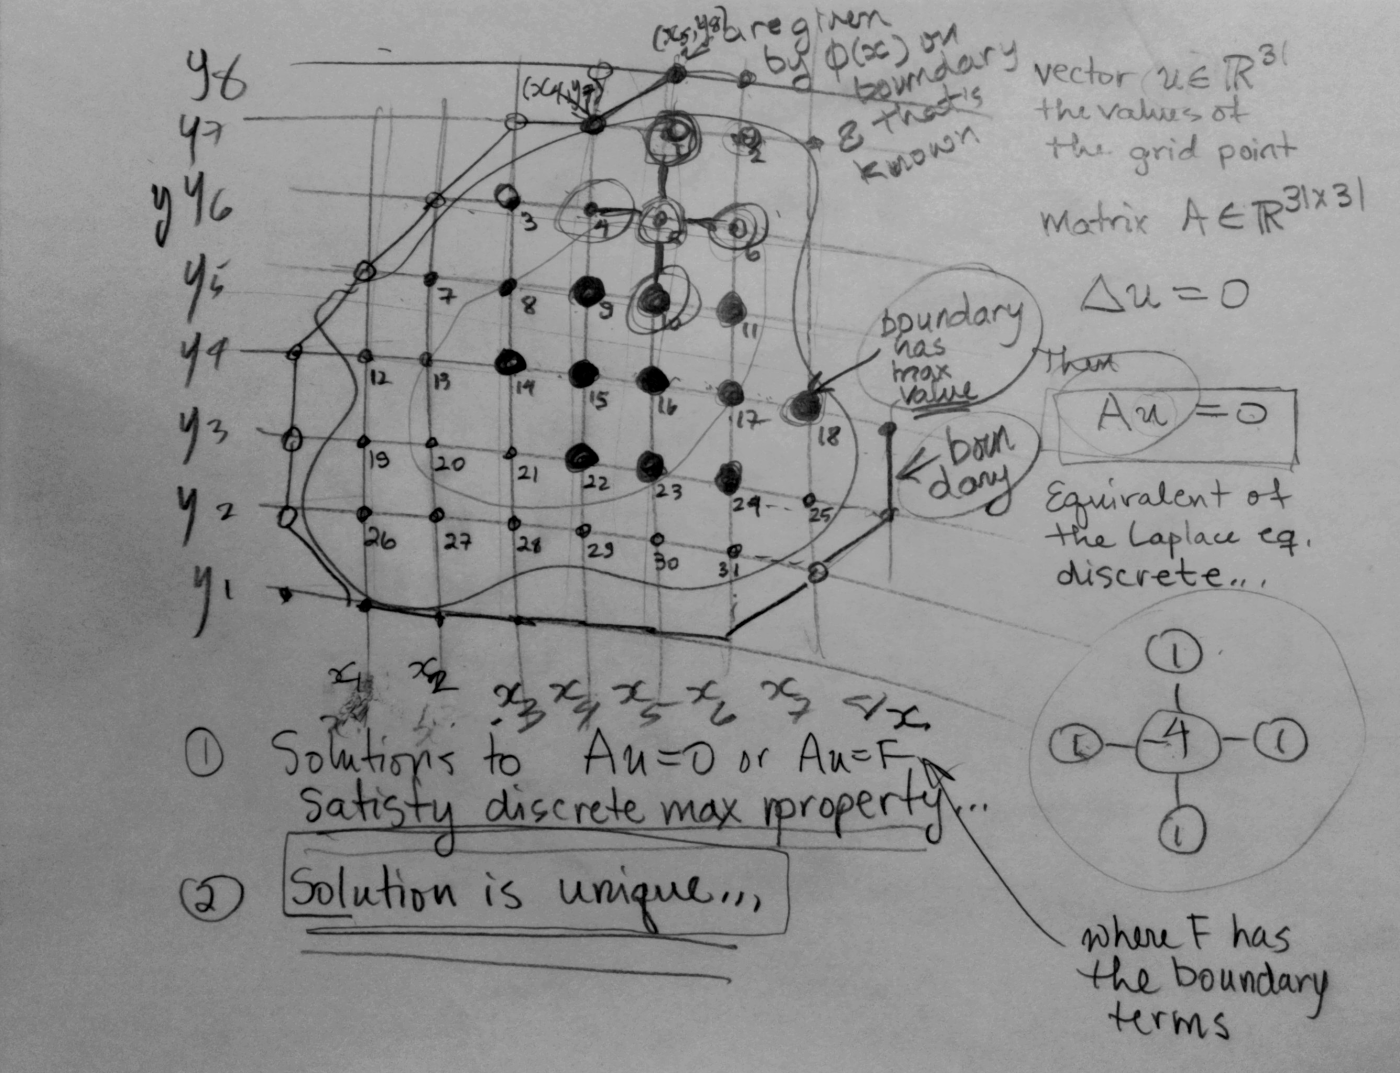 (x5, y8) are given
by ϕ(x) on
boundary
& that is
known
y8
y7
y y6
y5
y4
y3
y2
y1
(x4, y7)
1
2
3
4
5
6
7
8
9
10
11
12
13
14
15
16
17
18
19
20
21
22
23
24
25
26
27
28
29
30
31
x1
x2
x3
x4
x5
x6
x7
boundary
has
max
value
boun
dary
vector u ∈ ℝ^31
the values of
the grid point
Matrix A ∈ ℝ^31x31
Δu = 0
Then
Au = 0
Equivalent of
the Laplace eq.
discrete...
1
1 -4 1
1
① Solutions to Au=0 or Au=F
satisfy discrete max property...
② Solution is unique...
where F has
the boundary
terms